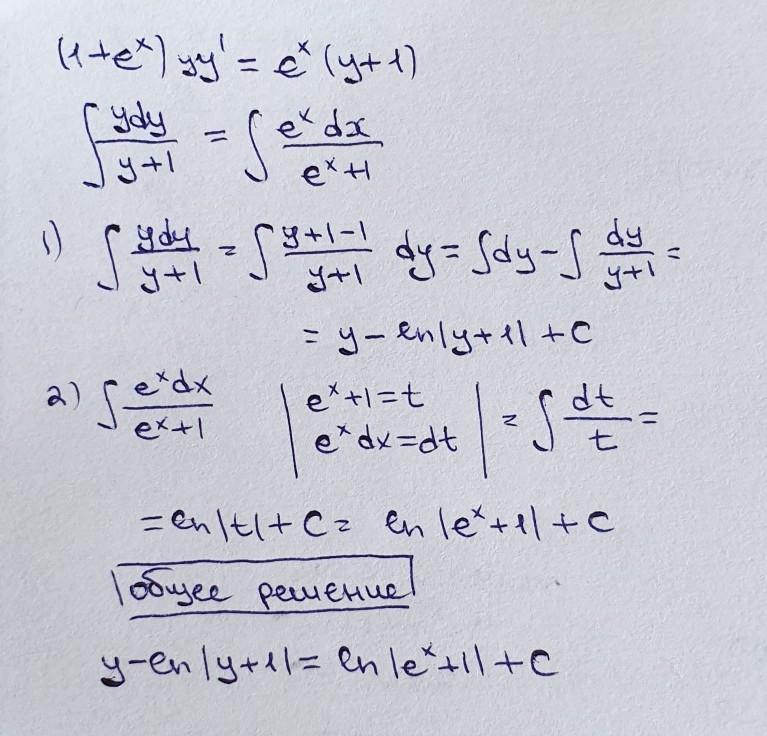 (1+eˣ) yy' = eˣ (y+1)
∫ ydy/(y+1) = ∫ eˣ dx/(eˣ+1)
1) ∫ ydy/(y+1) = ∫ (y+1-1)/(y+1) dy = ∫dy - ∫ dy/(y+1) =
= y - ln|y+1| + C
2) ∫ eˣdx/(eˣ+1) | eˣ+1=t eˣdx=dt | = ∫ dt/t =
= ln|t| + C = ln|eˣ+1| + C
общее решение
y - ln|y+1| = ln|eˣ+1| + C